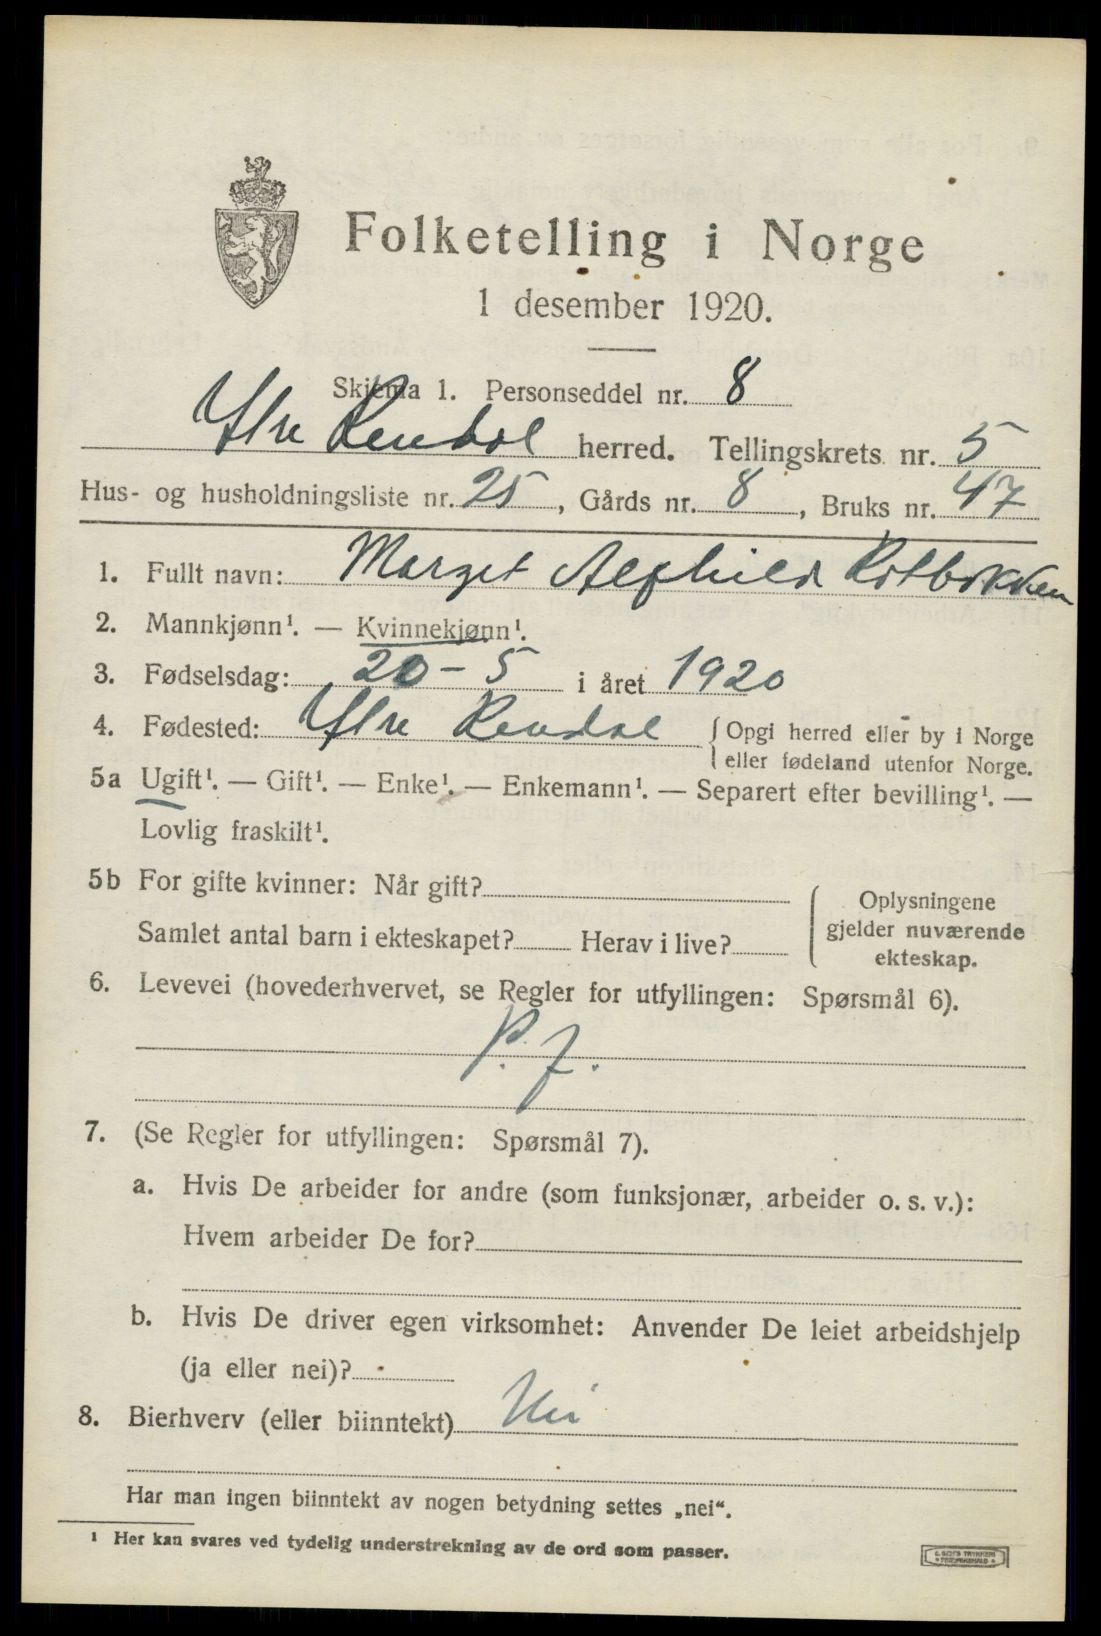 Folketelling i Norge
1 desember 1920.
Skjema 1. Personseddel nr. 8
Ytre Rendal herred. Tellingskrets nr. 5
Hus- og husholdningsliste nr. 25, Gårds nr. 8, Bruks nr. 47
1. Fullt navn: Marget Alfhild Rotbakken
2. Mannkjønn¹. — Kvinnekjønn¹.
3. Fødselsdag: 20 - 5 i året 1920
4. Fødested: Ytre Rendal { Opgi herred eller by i Norge
eller fødeland utenfor Norge.
5a Ugift¹. — Gift¹. — Enke¹. — Enkemann¹. — Separert efter bevilling¹. —
Lovlig fraskilt¹.
5b For gifte kvinner: Når gift?
Samlet antal barn i ekteskapet? Herav i live?
Oplysningene
gjelder nuværende
ekteskap.
6. Levevei (hovederhvervet, se Regler for utfyllingen: Spørsmål 6).
P. f.
7. (Se Regler for utfyllingen: Spørsmål 7).
a. Hvis De arbeider for andre (som funksjonær, arbeider o. s. v.):
Hvem arbeider De for?
b. Hvis De driver egen virksomhet: Anvender De leiet arbeidshjelp
(ja eller nei)?
8. Bierhverv (eller biinntekt) Nei
Har man ingen biinntekt av nogen betydning settes „nei“.
¹ Her kan svares ved tydelig understrekning av de ord som passer.